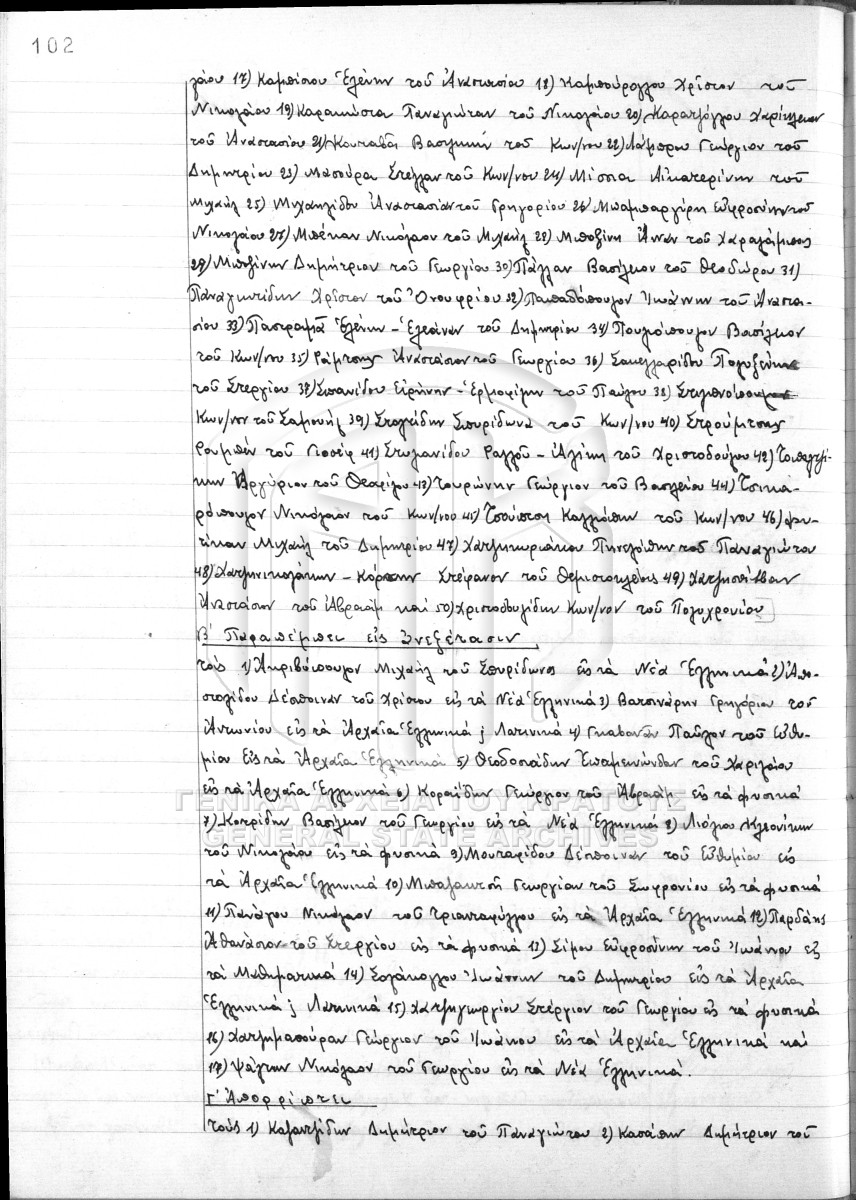 102
λάου 17) Καμπίσιου Ἑλένην τοῦ Ἀναστασίου 18) Καμπούρογλου Χρῆστον τοῦ
Νικολάου 19) Καρακώστα Παναγιώταν τοῦ Νικολάου 20) Καρατζόγλου Χαρίκλειαν
τοῦ Ἀναστασίου 21) Κουταβᾶ Βασιλικήν τοῦ Κων/νου 22) Λάμπρου Γεώργιον τοῦ
Δημητρίου 23) Μασούρα Στέλλαν τοῦ Κων/νου 24) Μίσσια Αἰκατερίνην τοῦ
Μιχαήλ 25) Μιχαηλίδου Ἀναστασίαν τοῦ Γρηγορίου 26) Μπαμπαργέρη Εὐφροσύνην τοῦ
Νικολάου 27) Μπέκαν Νικόλαον τοῦ Μιχαήλ 28) Μποζίνη Ἄνναν τοῦ Χαραλάμπους
29) Μποζίνην Δημήτριον τοῦ Γεωργίου 30) Πάλλαν Βασίλειον τοῦ Θεοδώρου 31)
Παναγιωτίδην Χρῆστον τοῦ Ὀνουφρίου 32) Παπαδόπουλον Ἰωάννην τοῦ Ἀναστα-
σίου 33) Παστραμᾶ Ἑλένην - Ἐλεάναν τοῦ Δημητρίου 34) Πουλιόπουλον Βασίλειον
τοῦ Κων/νου 35) Ράμτσης Ἀναστάσιον τοῦ Γεωργίου 36) Σακελλαρίδου Πολυξένην
τοῦ Στεργίου 37) Σπανίδου Εἰρήνην - Ἑρμοφίλην τοῦ Παύλου 38)
Κων/νον τοῦ Σαμουήλ 39) Στολτίδην Σπυρίδωνα τοῦ Κων/νου 40) Στρούμτσης
Ραμπέν τοῦ Γιοσέφ 41) Στυλιανίδου Ραλλοῦ - Ἀλίκην τοῦ Χριστοδούλου 42) Τοπαλτζί-
κην Ἀργύριον τοῦ Θεοφίλου 43) Τουρώνην Γεώργιον τοῦ Βασιλείου 44) Τσικα-
ρδόπουλον Νικόλαον τοῦ Κων/νου 45) Τσούπτση Καλλιόπην τοῦ Κων/νου 46) Φυ-
τίκαν Μιχαήλ τοῦ Δημητρίου 47) Χατζηκυριάκου Πηνελόπην τοῦ Παναγιώτου
48) Χατζηνικολάκην - Κόρπην Στέφανον τοῦ Θεμιστοκλέους 49) Χατζησάββαν
Ἀναστάσιον τοῦ Ἀβραάμ καί 50) Χριστοδουλίδην Κων/νον τοῦ Πολυχρονίου
Β΄ Παραπέμπει εἰς ἀνεξέτασιν
τούς 1) Ἀκριβόπουλον Μιχαήλ τοῦ Σπυρίδωνος εἰς τά Νέα Ἑλληνικά 2) Ἀπο-
στολίδου Δέσποιναν τοῦ Χρίστου εἰς τά Νέα Ἑλληνικά 3) Βατσινάρην Γρηγόριον τοῦ
Ἀντωνίου εἰς τά Ἀρχαῖα Ἑλληνικά ἤ Λατινικά 4) Γκαβανᾶν Παῦλον τοῦ Εὐθυ-
μίου εἰς τά Ἀρχαῖα Ἑλληνικά 5) Θεοδοσιάδην Ἐπαμεινώνδαν τοῦ Χαριλάου
εἰς τά Ἀρχαῖα Ἑλληνικά 6) Κοραήδην Γεώργιον τοῦ Ἀβραάμ εἰς τά Φυσικά
7) Κοτρίδην Βασίλειον τοῦ Γεωργίου εἰς τά Νέα Ἑλληνικά 8) Λιόλιου Κλεονίκην
τοῦ Νικολάου εἰς τά Φυσικά 9) Μουταφίδου Δέσποιναν τοῦ Εὐθυμίου εἰς
τά Ἀρχαῖα Ἑλληνικά 10) Μπαλακτσῆ Γεωργίαν τοῦ Σωφρονίου εἰς τά Φυσικά
11) Πανάγου Νικόλαον τοῦ Τριανταφύλλου εἰς τά Ἀρχαῖα Ἑλληνικά 12) Παρδάλης
Ἀθανάσιον τοῦ Στεργίου εἰς τά Φυσικά 13) Σίμου Εὐφροσύνην τοῦ Ἰωάννου εἰς
τά Μαθηματικά 14) Σολάκογλου Ἰωάννην τοῦ Δημητρίου εἰς τά Ἀρχαῖα
Ἑλληνικά ἤ Λατινικά 15) Χατζηγεωργίου Στέργιον τοῦ Γεωργίου εἰς τά Φυσικά
16) Χατζημασούραν Γεώργιον τοῦ Ἰωάννου εἰς τά Ἀρχαῖα Ἑλληνικά καί
17) Ψάλτην Νικόλαον τοῦ Γεωργίου εἰς τά Νέα Ἑλληνικά.
Γ΄ Ἀπορρίπτει
τούς 1) Καζαντζίδην Δημήτριον τοῦ Παναγιώτου 2) Κασάπην Δημήτριον τοῦ
ΓΕΝΙΚΑ ΑΡΧΕΙΑ ΤΟΥ ΚΡΑΤΟΥΣ
GENERAL STATE ARCHIVES